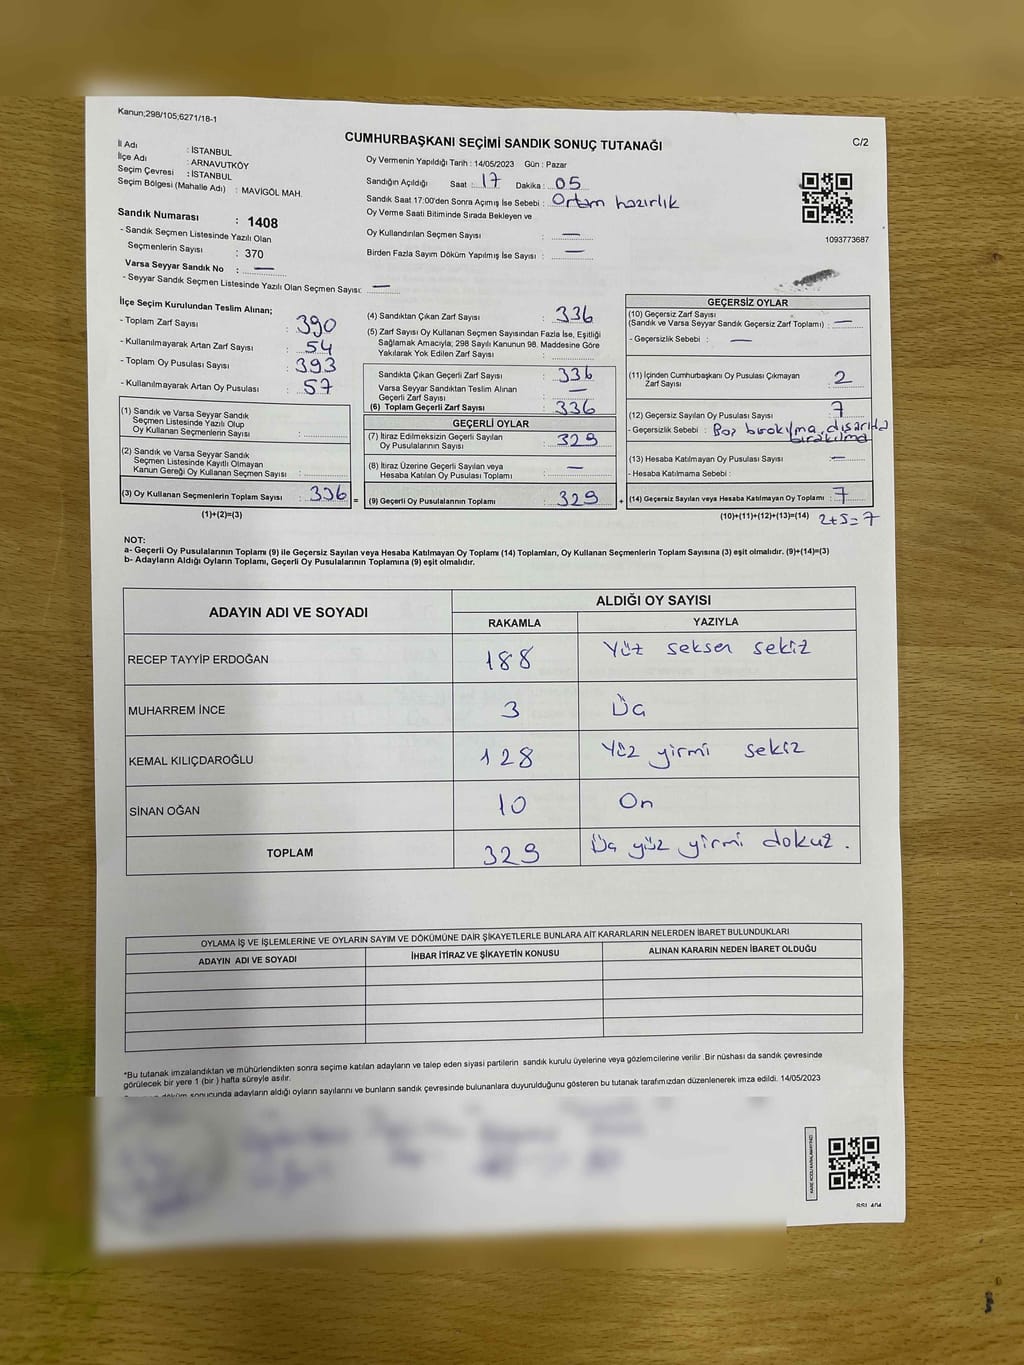 Kanun;298/105;6271/18-1
CUMHURBAŞKANI SEÇİMİ SANDIK SONUÇ TUTANAĞI
C/2
İl Adı : İSTANBUL
İlçe Adı : ARNAVUTKÖY
Seçim Çevresi : İSTANBUL
Seçim Bölgesi (Mahalle Adı) : MAVİGÖL MAH.
Sandık Numarası : 1408
- Sandık Seçmen Listesinde Yazılı Olan
Seçmenlerin Sayısı : 370
Varsa Seyyar Sandık No : —
- Seyyar Sandık Seçmen Listesinde Yazılı Olan Seçmen Sayısı: —
Oy Vermenin Yapıldığı Tarih : 14/05/2023 Gün : Pazar
Sandığın Açıldığı Saat : 17 Dakika : 05
Sandık Saat 17:00'den Sonra Açımış İse Sebebi : Ortam hazırlık
Oy Verme Saati Bitiminde Sırada Bekleyen ve
Oy Kullandırılan Seçmen Sayısı : —
Birden Fazla Sayım Döküm Yapılmış İse Sayısı : —
1093773687
İlçe Seçim Kurulundan Teslim Alınan;
- Toplam Zarf Sayısı : 390
- Kullanılmayarak Artan Zarf Sayısı : 54
- Toplam Oy Pusulası Sayısı : 393
- Kullanılmayarak Artan Oy Pusulası : 57
(1) Sandık ve Varsa Seyyar Sandık
Seçmen Listesinde Yazılı Olup
Oy Kullanan Seçmenlerin Sayısı :
(2) Sandık ve Varsa Seyyar Sandık
Seçmen Listesinde Kayıtlı Olmayan
Kanun Gereği Oy Kullanan Seçmen Sayısı :
(3) Oy Kullanan Seçmenlerin Toplam Sayısı : 336 =
(1)+(2)=(3)
(4) Sandıktan Çıkan Zarf Sayısı : 336
(5) Zarf Sayısı Oy Kullanan Seçmen Sayısından Fazla İse, Eşitliği
Sağlamak Amacıyla; 298 Sayılı Kanunun 98. Maddesine Göre
Yakılarak Yok Edilen Zarf Sayısı :
Sandıkta Çıkan Geçerli Zarf Sayısı : 336
Varsa Seyyar Sandıktan Teslim Alınan
Geçerli Zarf Sayısı : —
(6) Toplam Geçerli Zarf Sayısı : 336
GEÇERLİ OYLAR
(7) İtiraz Edilmeksizin Geçerli Sayılan
Oy Pusulalarının Sayısı : 329
(8) İtiraz Üzerine Geçerli Sayılan veya
Hesaba Katılan Oy Pusulası Toplamı : —
(9) Geçerli Oy Pusulalarının Toplamı : 329 +
GEÇERSİZ OYLAR
(10) Geçersiz Zarf Sayısı
(Sandık ve Varsa Seyyar Sandık Geçersiz Zarf Toplamı) : —
- Geçersizlik Sebebi : —
(11) İçinden Cumhurbaşkanı Oy Pusulası Çıkmayan
Zarf Sayısı : 2
(12) Geçersiz Sayılan Oy Pusulası Sayısı : 7
- Geçersizlik Sebebi : Boş bırakılma, dışarıda
bırakılma
(13) Hesaba Katılmayan Oy Pusulası Sayısı : —
- Hesaba Katılmama Sebebi :
(14) Geçersiz Sayılan veya Hesaba Katılmayan Oy Toplamı : 7
(10)+(11)+(12)+(13)=(14) 2+5=7
NOT:
a- Geçerli Oy Pusulalarının Toplamı (9) ile Geçersiz Sayılan veya Hesaba Katılmayan Oy Toplamı (14) Toplamları, Oy Kullanan Seçmenlerin Toplam Sayısına (3) eşit olmalıdır. (9)+(14)=(3)
b- Adayların Aldığı Oyların Toplamı, Geçerli Oy Pusulalarının Toplamına (9) eşit olmalıdır.
ADAYIN ADI VE SOYADI
ALDIĞI OY SAYISI
RAKAMLA YAZIYLA
RECEP TAYYİP ERDOĞAN 188 Yüz seksen sekiz
MUHARREM İNCE 3 Üç
KEMAL KILIÇDAROĞLU 128 Yüz yirmi sekiz
SİNAN OĞAN 10 On
TOPLAM 329 Üç yüz yirmi dokuz.
OYLAMA İŞ VE İŞLEMLERİNE VE OYLARIN SAYIM VE DÖKÜMÜNE DAİR ŞİKAYETLERLE BUNLARA AİT KARARLARIN NELERDEN İBARET BULUNDUKLARI
ADAYIN ADI VE SOYADI İHBAR İTİRAZ VE ŞİKAYETİN KONUSU ALINAN KARARIN NEDEN İBARET OLDUĞU
*Bu tutanak imzalandıktan ve mühürlendikten sonra seçime katılan adayların ve talep eden siyasi partilerin sandık kurulu üyelerine veya gözlemcilerine verilir .Bir nüshası da sandık çevresinde
görülecek bir yere 1 (bir ) hafta süreyle asılır.
döküm sonucunda adayların aldığı oyların sayılarını ve bunların sandık çevresinde bulunanlara duyurulduğunu gösteren bu tutanak tarafımızdan düzenlenerek imza edildi. 14/05/2023